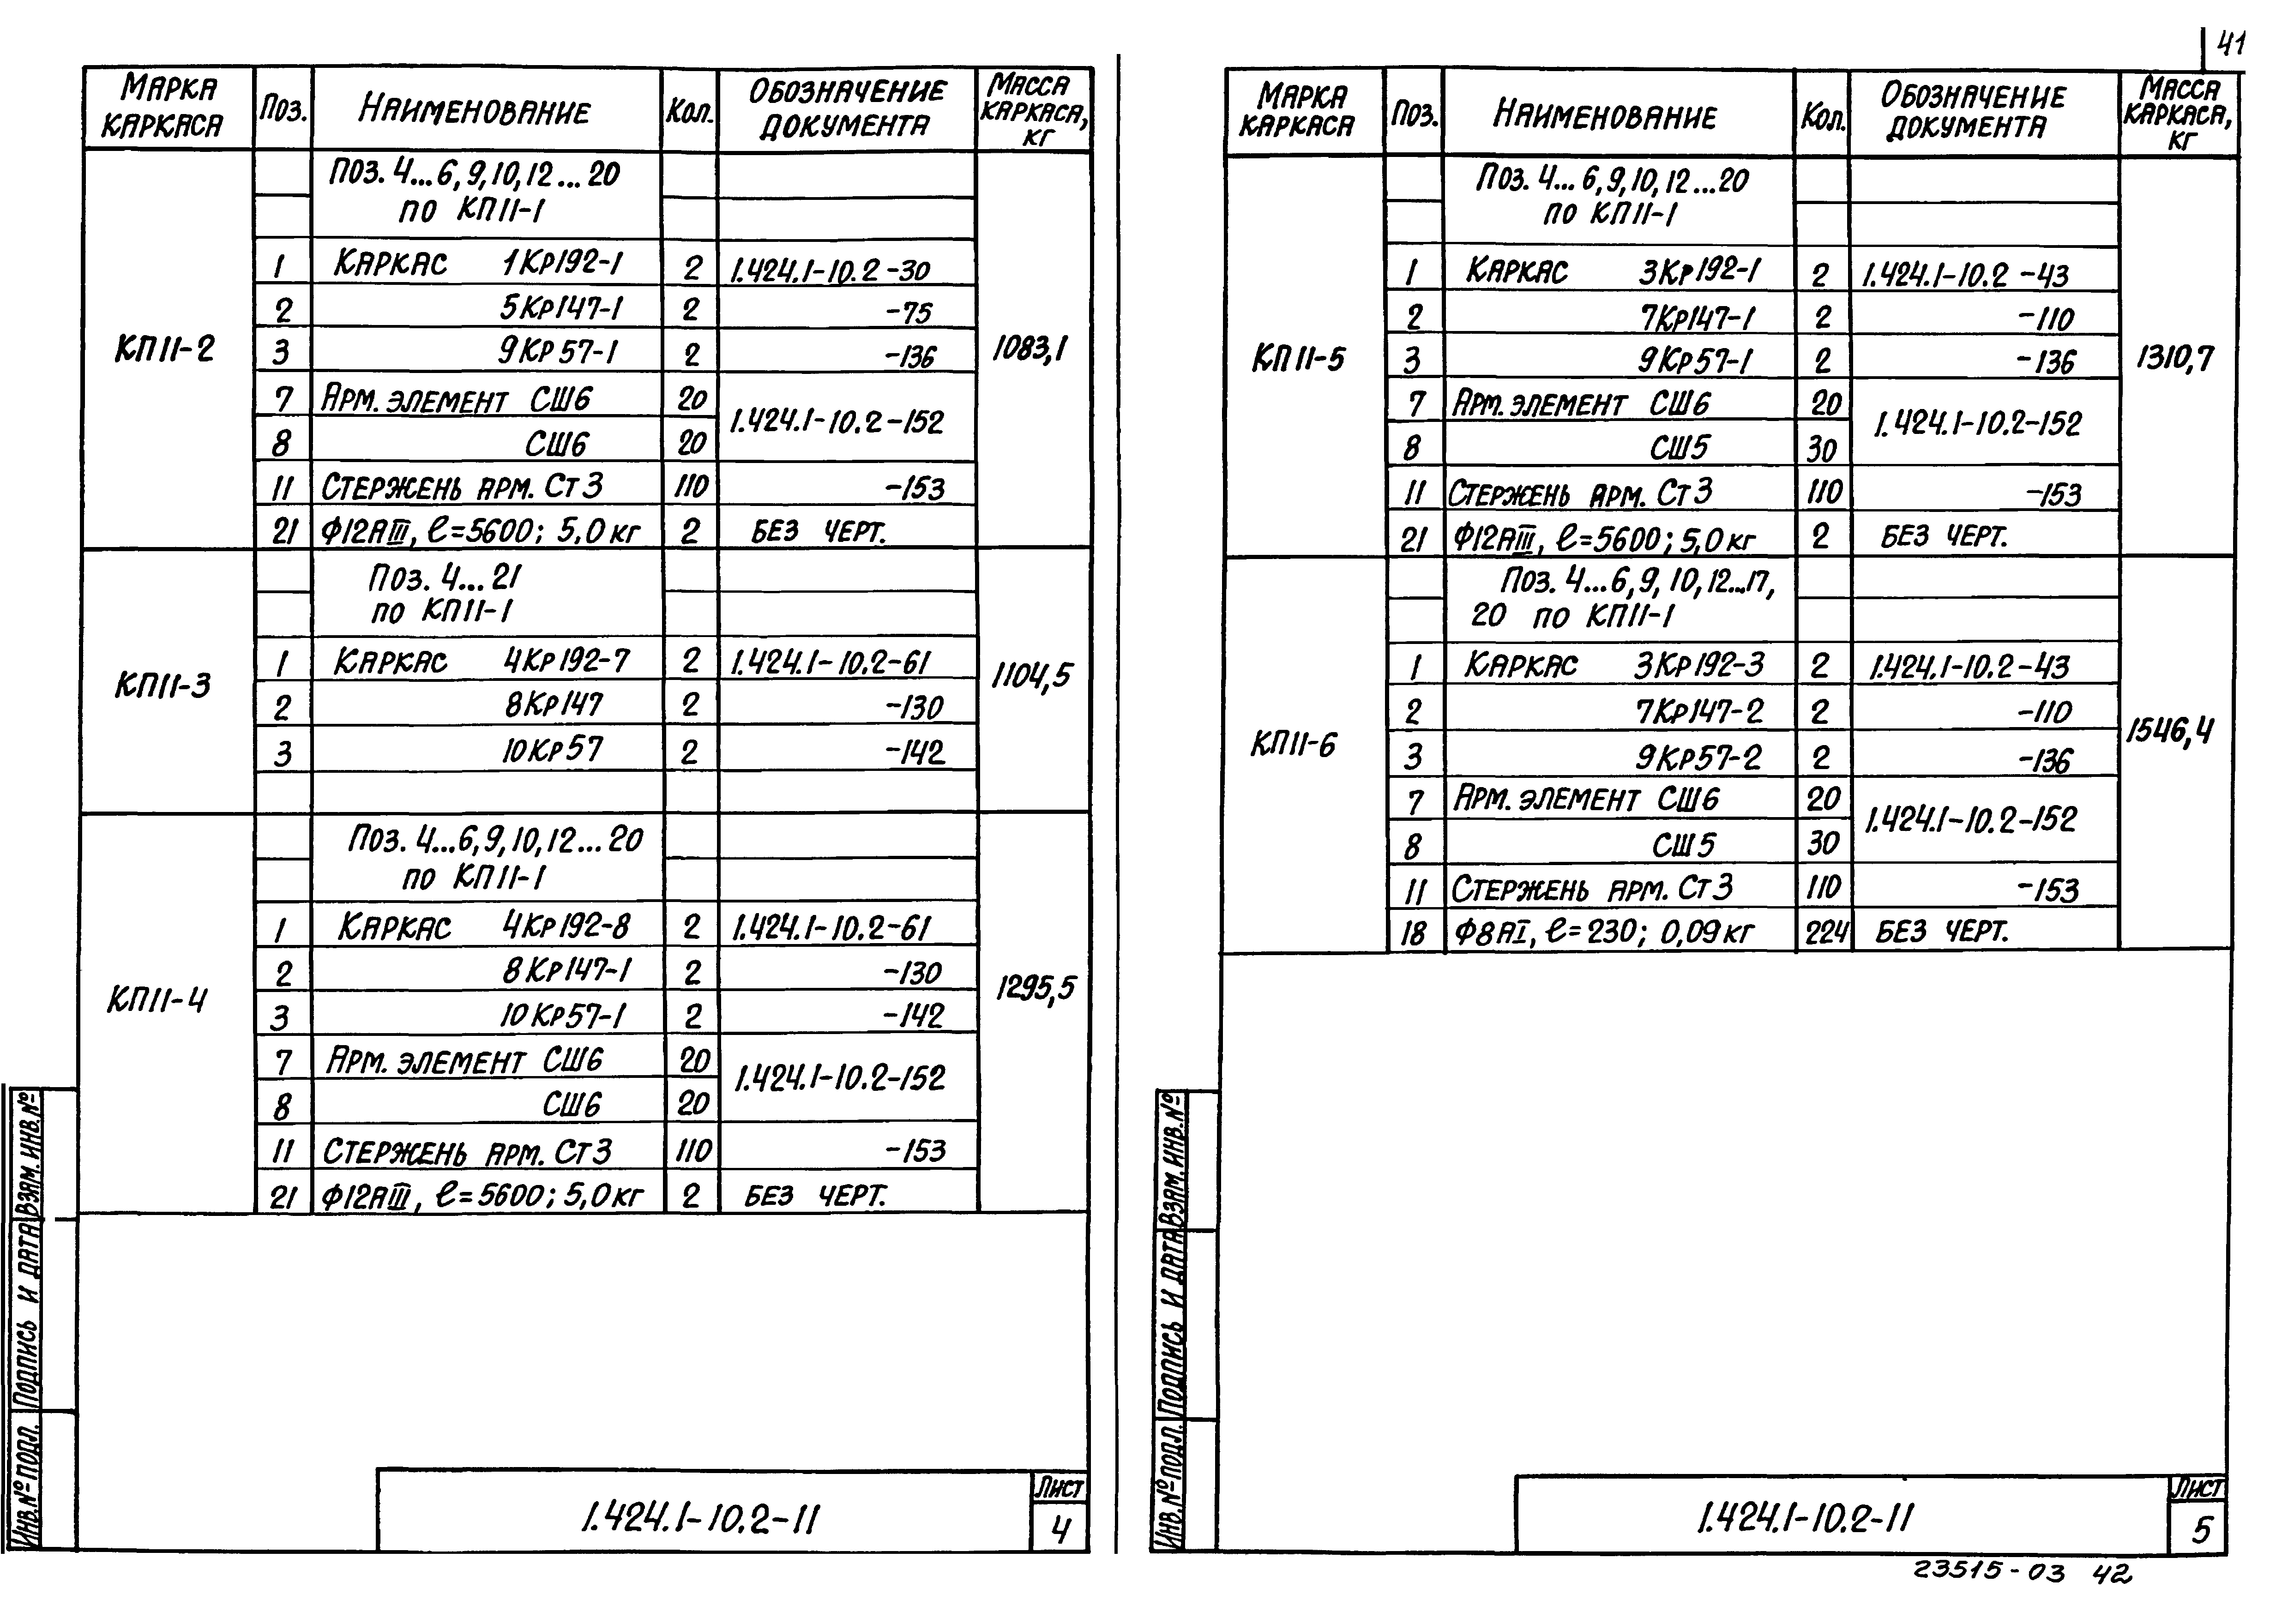 41
Марка каркаса Поз. Наименование Кол. Обозначение документа Масса каркаса, кг
КП11-2 1083,1
Поз. 4...6, 9, 10, 12...20
по КП11-1
1 Каркас 1Кр192-1 2 1.424.1-10.2-30
2 5Кр147-1 2 -75
3 9Кр57-1 2 -136
7 Арм. элемент СШ6 20 1.424.1-10.2-152
8 СШ6 20
11 Стержень арм. Ст3 110 -153
21 Ф12АIII, ℓ=5600; 5,0кг 2 без черт.
КП11-3 1104,5
Поз. 4...21
по КП11-1
1 Каркас 4Кр192-7 2 1.424.1-10.2-61
2 8Кр147 2 -130
3 10Кр57 2 -142
КП11-4 1295,5
Поз. 4...6, 9, 10, 12...20
по КП11-1
1 Каркас 4Кр192-8 2 1.424.1-10.2-61
2 8Кр147-1 2 -130
3 10Кр57-1 2 -142
7 Арм. элемент СШ6 20 1.424.1-10.2-152
8 СШ6 20
11 Стержень арм. Ст3 110 -153
21 Ф12АIII, ℓ=5600; 5,0кг 2 без черт.
Инв.№подл. Подпись и дата Взам.инв.№
1.424.1-10.2-11
Лист
4
Марка каркаса Поз. Наименование Кол. Обозначение документа Масса каркаса, кг
КП11-5 1310,7
Поз. 4...6, 9, 10, 12...20
по КП11-1
1 Каркас 3Кр192-1 2 1.424.1-10.2-43
2 7Кр147-1 2 -110
3 9Кр57-1 2 -136
7 Арм. элемент СШ6 20 1.424.1-10.2-152
8 СШ5 30
11 Стержень арм. Ст3 110 -153
21 Ф12АIII, ℓ=5600; 5,0кг 2 без черт.
КП11-6 1546,4
Поз. 4...6, 9, 10, 12...17,
20 по КП11-1
1 Каркас 3Кр192-3 2 1.424.1-10.2-43
2 7Кр147-2 2 -110
3 9Кр57-2 2 -136
7 Арм. элемент СШ6 20 1.424.1-10.2-152
8 СШ5 30
11 Стержень арм. Ст3 110 -153
18 Ф8АI, ℓ=230; 0,09кг 224 без черт.
Инв.№подл. Подпись и дата Взам.инв.№
1.424.1-10.2-11
Лист
5
23515-03 42